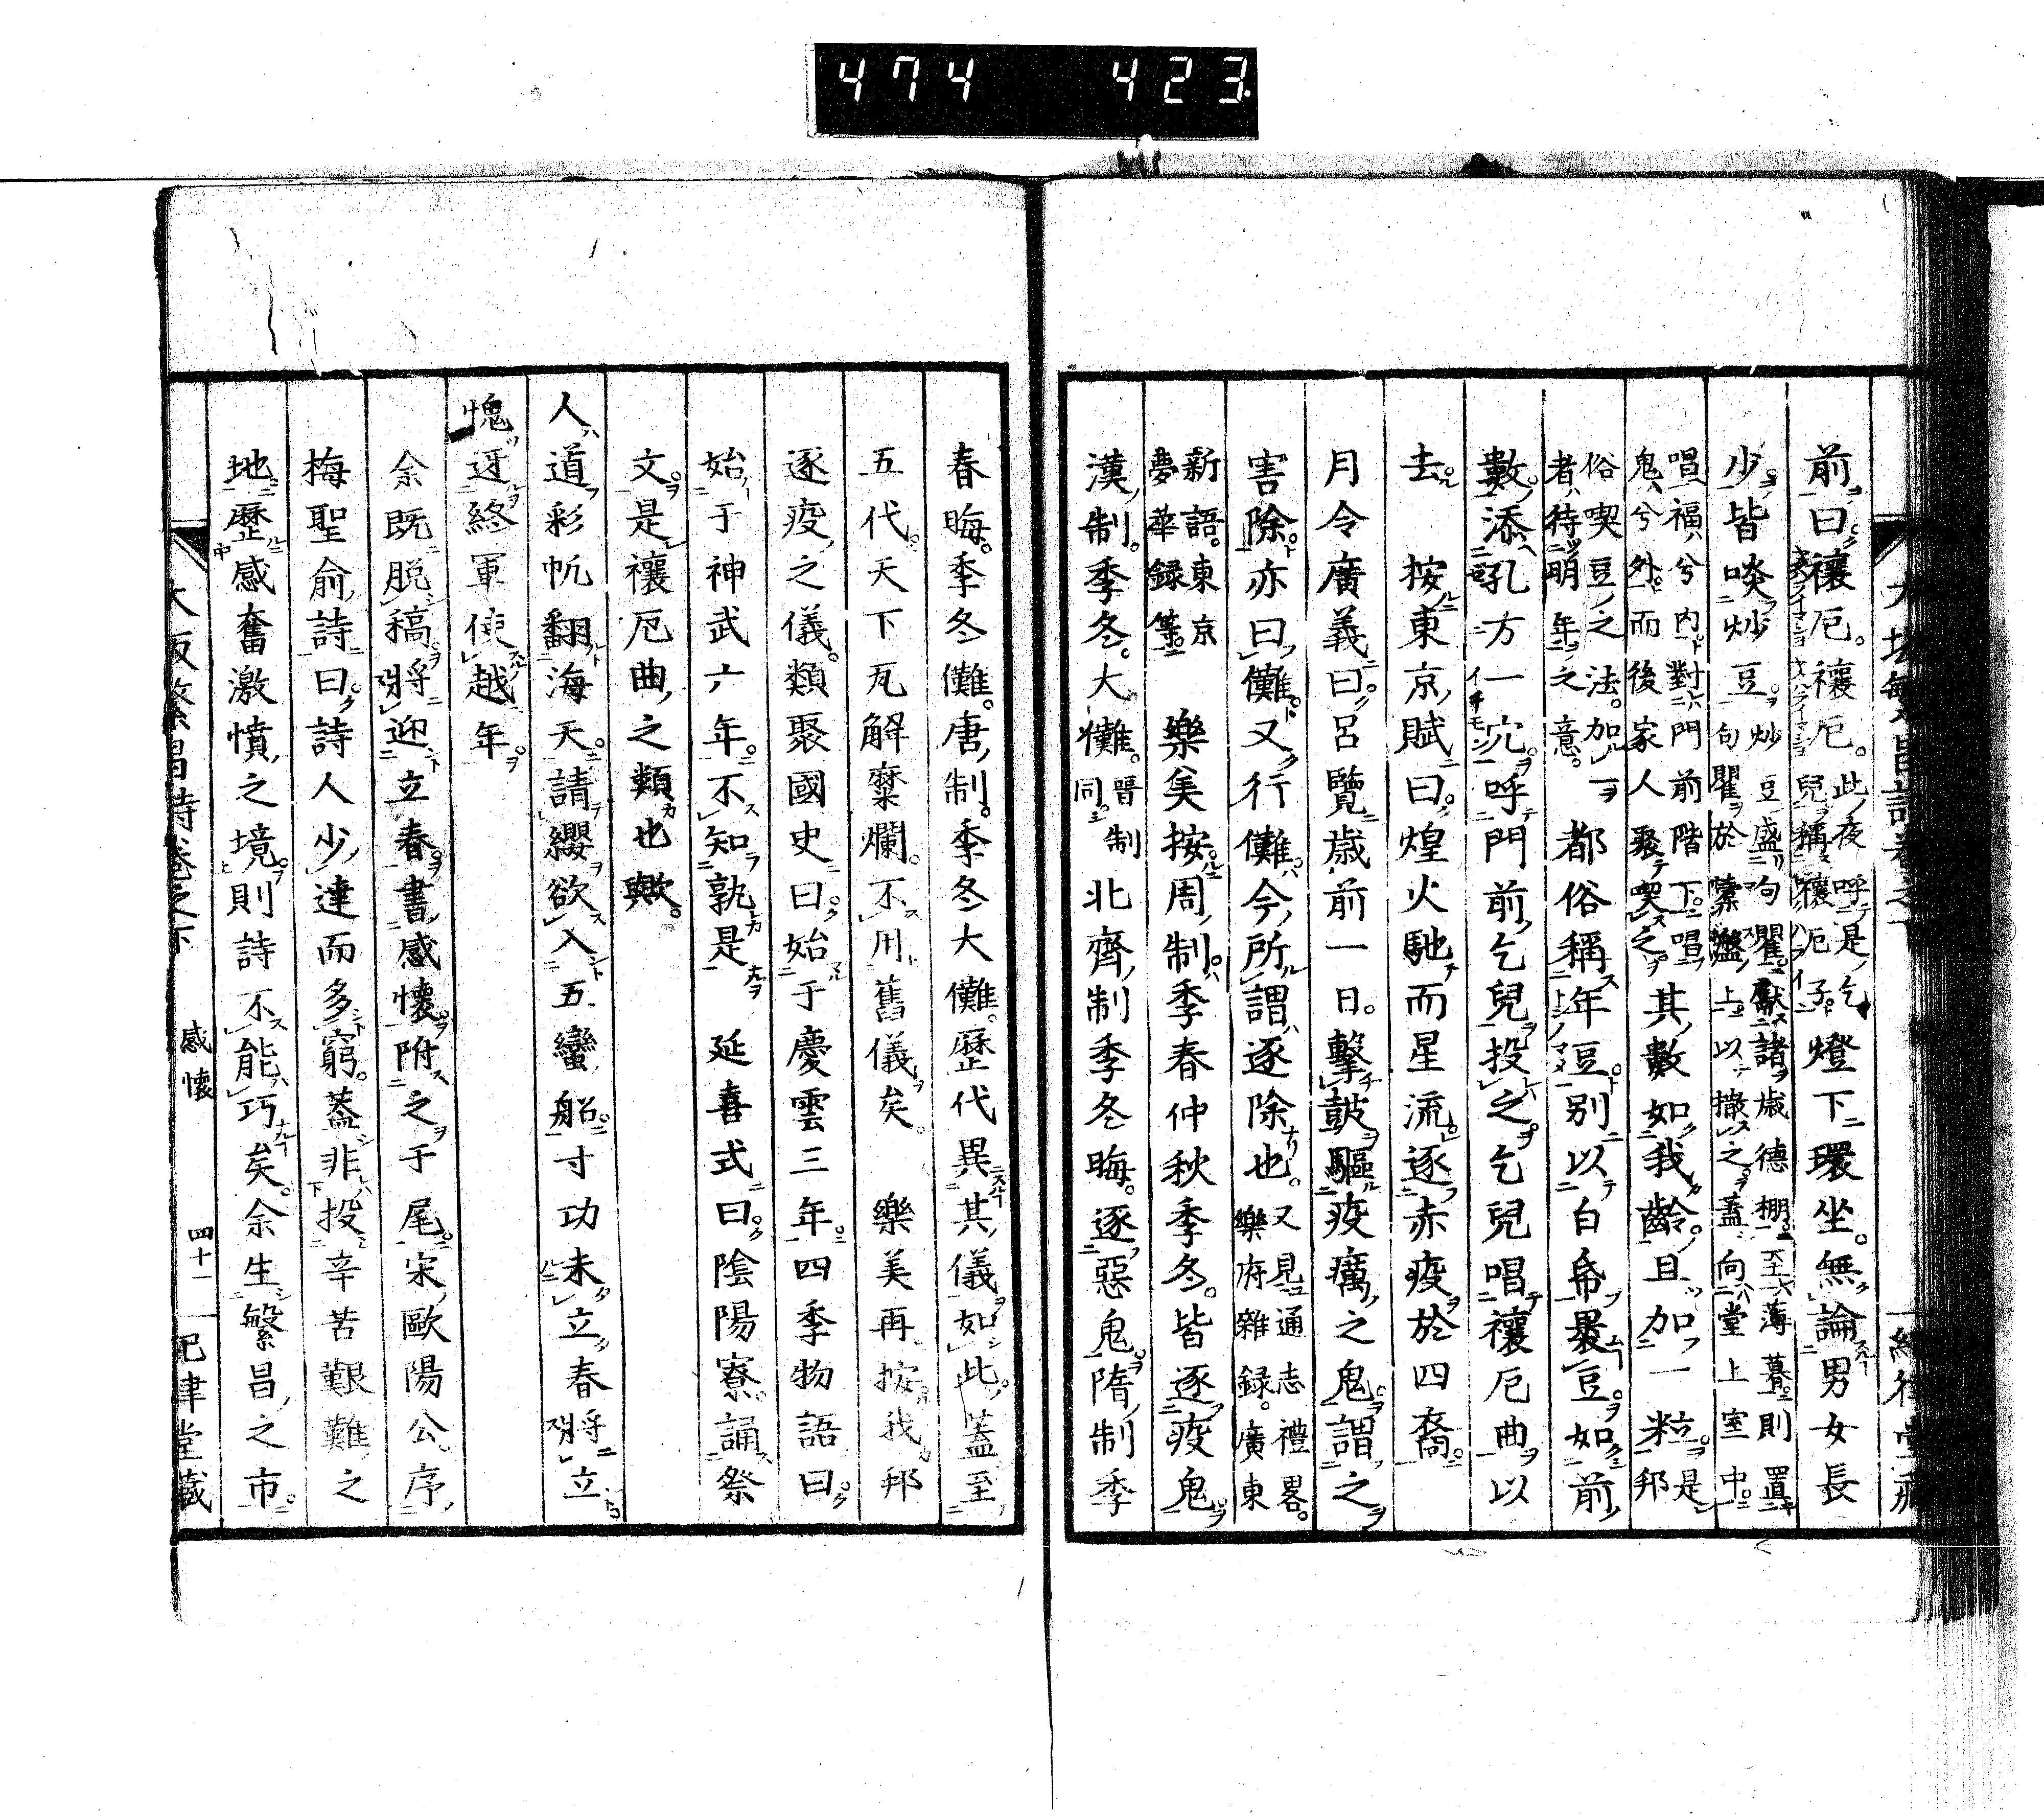 474 423
前曰禳厄。禳厄。此夜呼是乞
兒稱禳厄子。燈下環坐。無論男女長
少皆啖炒豆。炒豆盛句瞿獻諸歲德棚至薄暮則置
句瞿於上以撒之。蓋向堂上室中
唱福兮內對門前階下唱
鬼兮外而後家人聚喫之其數如我齡且加一粒是
邦
俗喫豆之法。加一
者待明年之意。都俗稱年豆別以白希裹豆如前
數添孔方一穴呼門前乞兒投之乞兒唱禳厄曲以
去 按東京賦曰煌火馳而星流逐赤疫於四裔
月令廣義曰呂覽歲前一日。擊鼓驅疫癘之鬼謂之
害除亦曰儺又行儺今所謂逐除也。又見通志禮畧。
樂府雜録。廣東
新語。東京
夢華録等。樂美按周制季春仲秋季冬。皆逐疫鬼
漢制。季冬。大儺。晉制
同 北齊制季冬晦。逐惡鬼隋制季
春晦。季冬儺。唐制。季冬大儺。歷代異其儀如此蓋至
五代天下瓦解糜爛。不用舊儀矣。 樂美再按我邦
逐疫之儀。類聚國史曰始于慶雲三年四季物語曰
始于神武六年不知孰是 延喜式曰陰陽寮誦祭
文是禳厄曲之類也歟。
人道彩帆翻海天請纓欲入五蠻船寸功未立春將立
愧迓終軍使越年
余既脱稿將迎立春書感懷附之于尾宋歐陽公序
梅聖俞詩曰詩人少達而多窮。蓋非投辛苦艱難之
地歷感奮激憤之境則詩不能巧矣。余生繁昌之市
大阪繁昌詩卷之下 感懷 四十一